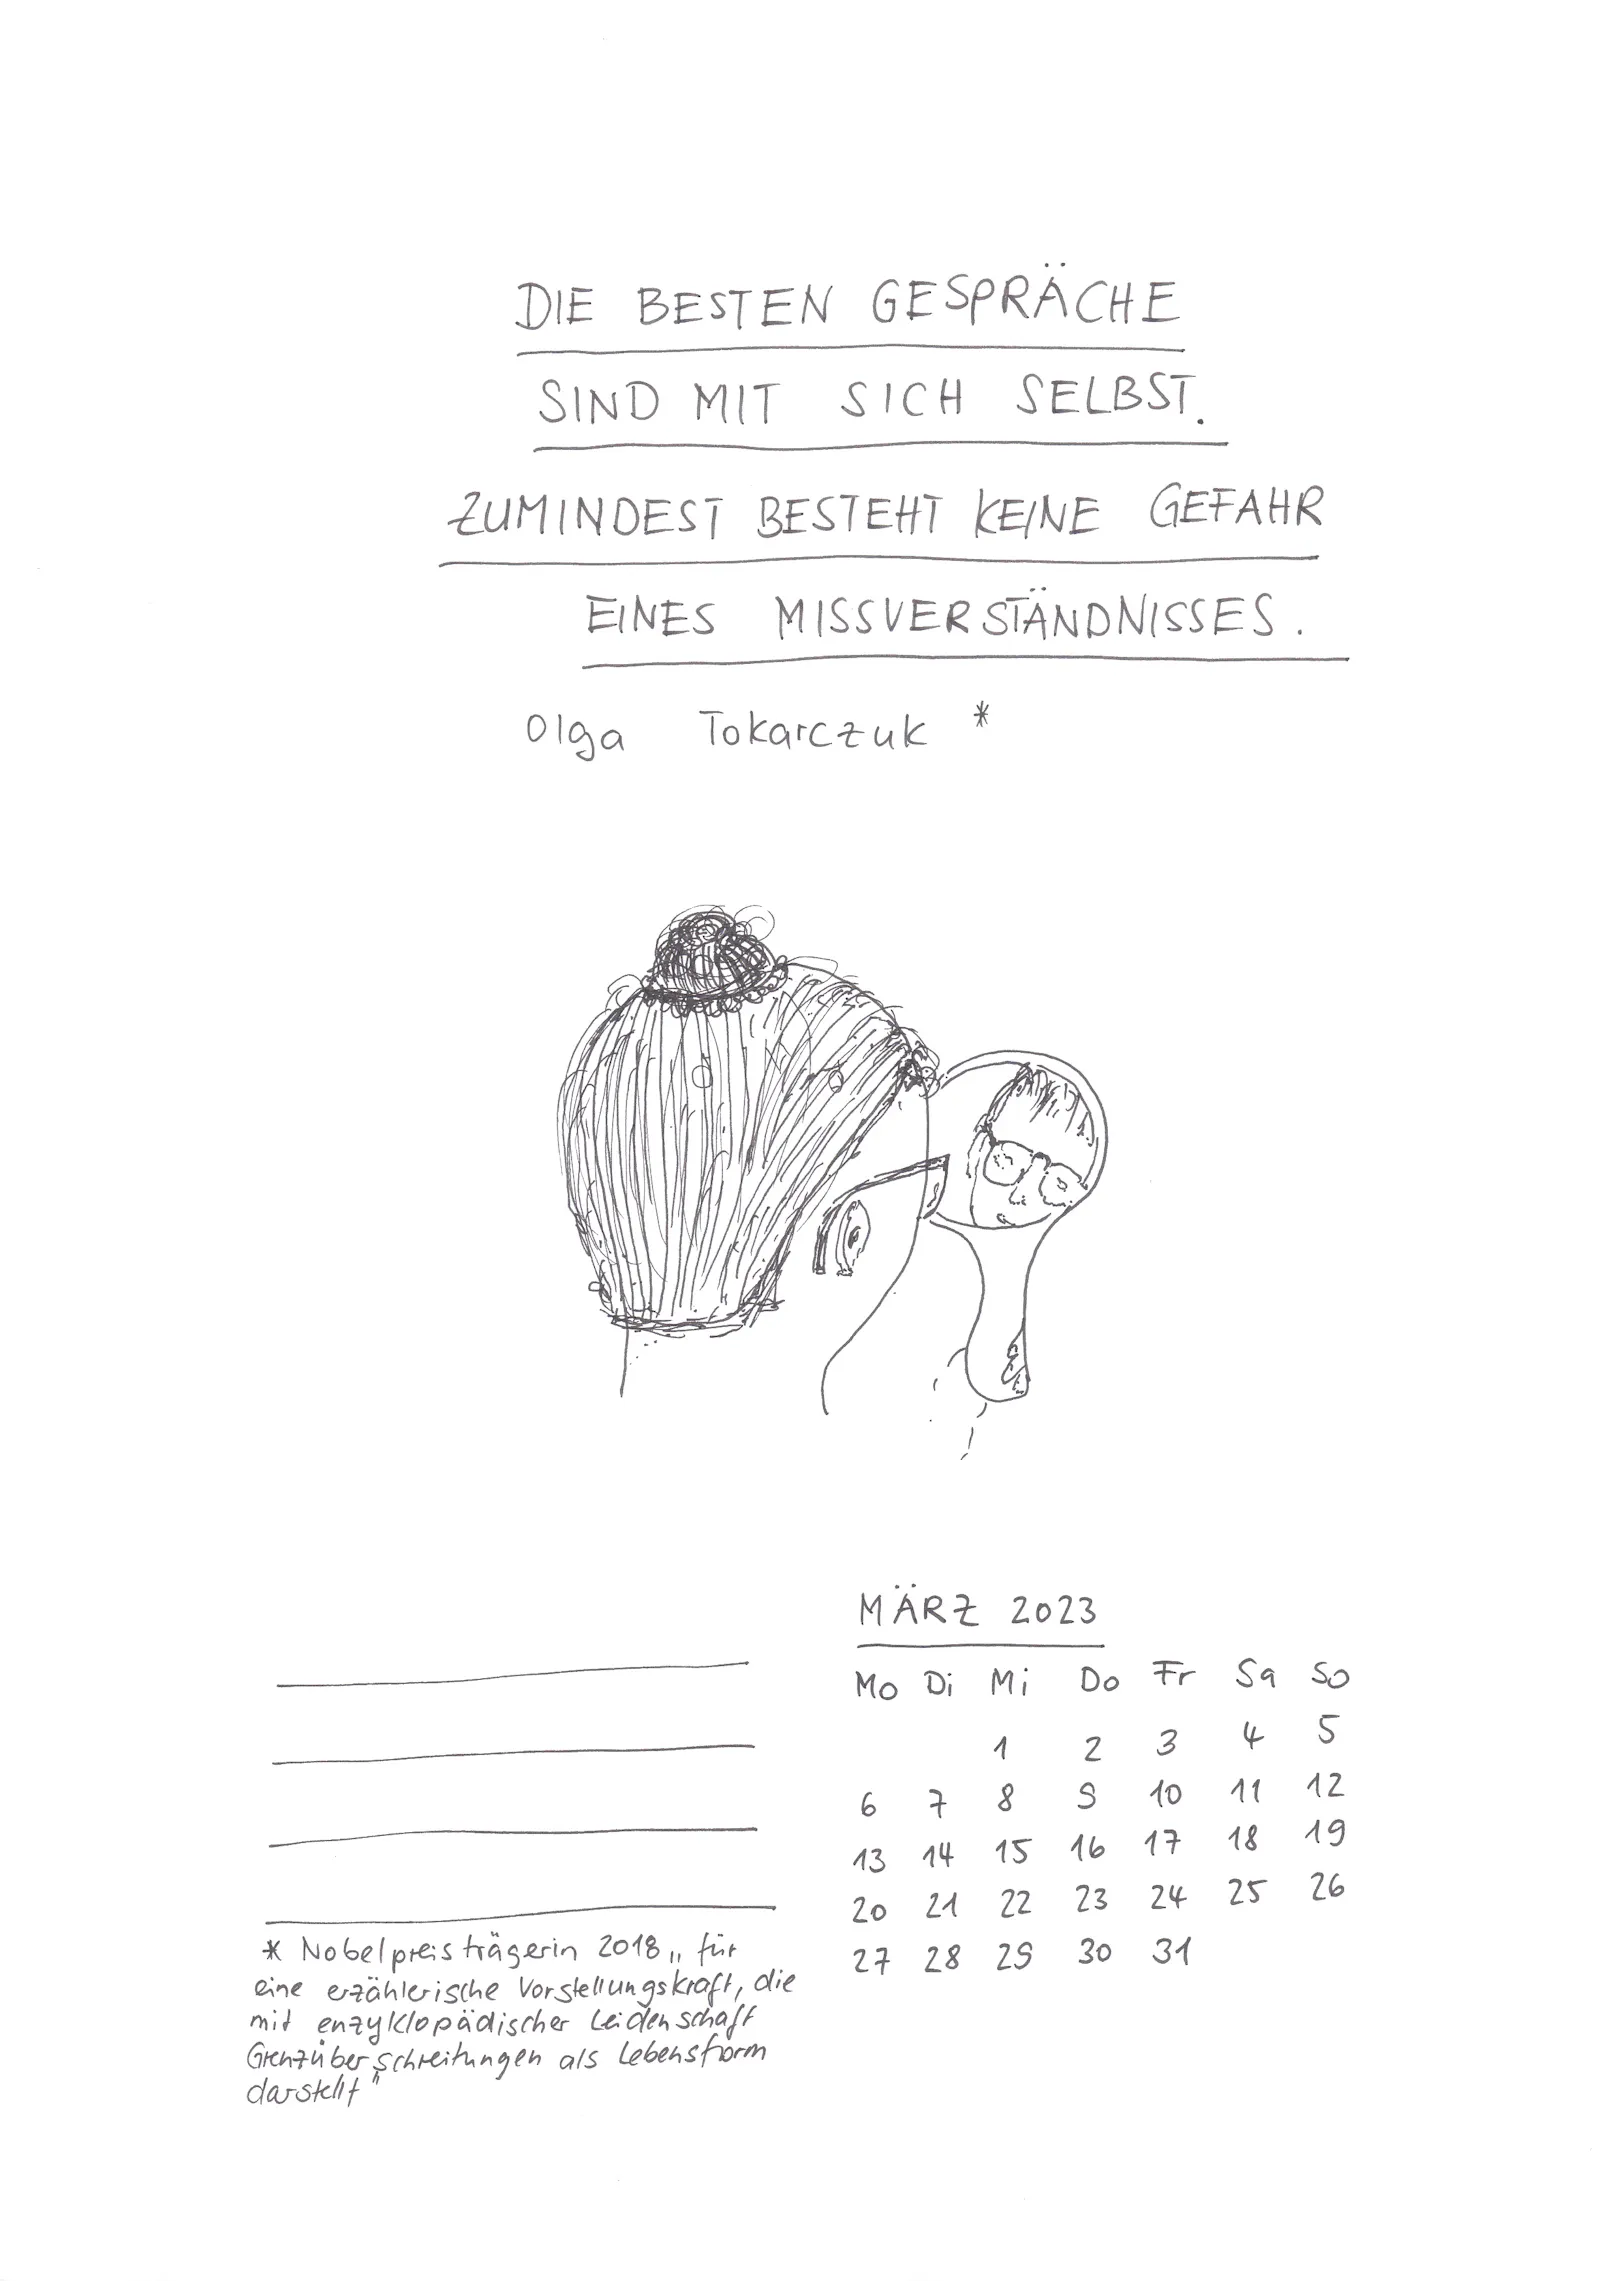 DIE BESTEN GESPRÄCHE
SIND MIT SICH SELBST.
ZUMINDEST BESTEHT KEINE GEFAHR
EINES MISSVERSTÄNDNISSES.
Olga Tokarczuk *
MÄRZ 2023
Mo Di Mi Do Fr Sa So
1 2 3 4 5
6 7 8 9 10 11 12
13 14 15 16 17 18 19
20 21 22 23 24 25 26
27 28 29 30 31
* Nobelpreisträgerin 2018 „für
eine erzählerische Vorstellungskraft, die
mit enzyklopädischer Leidenschaft
Grenzüberschreitungen als Lebensform
darstellt"